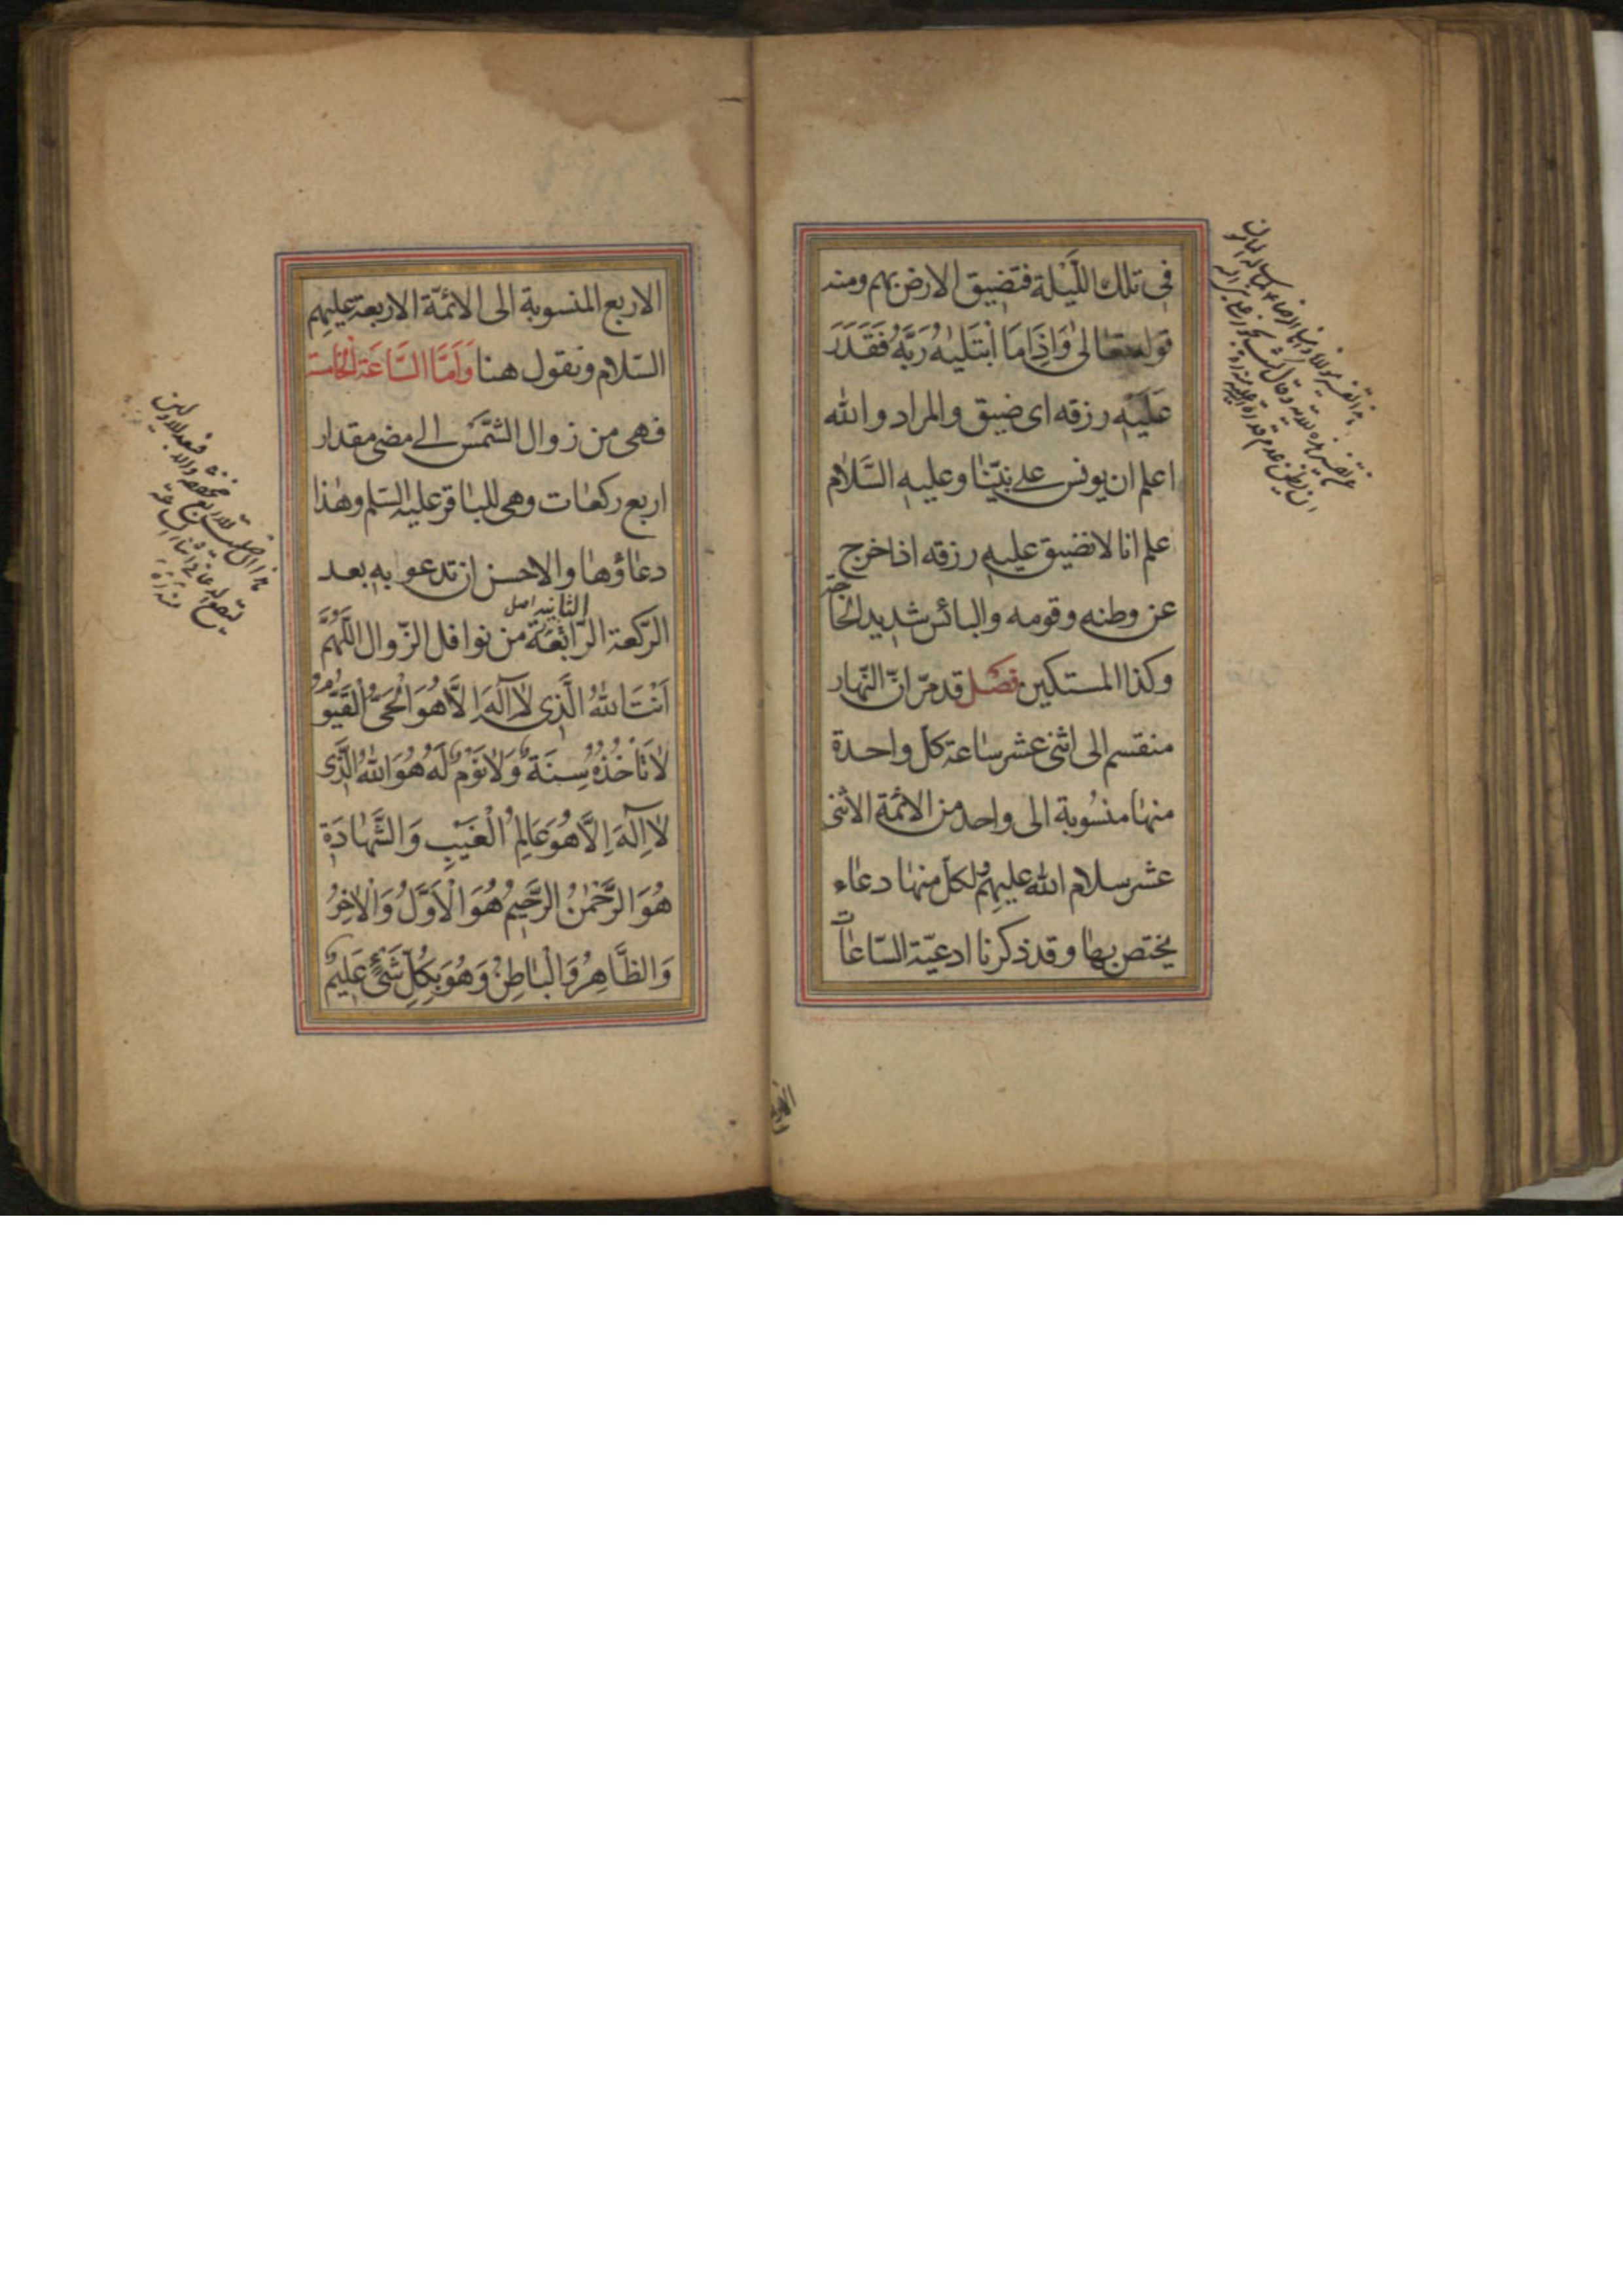 في تلك اللَّيْلة فتضيق الارض بهم ومنه
قوله تعالى وَاِذَا مَا ابْتَلَيٰهُ رَبَّهُ فَقَدَرَ
عَلَيْهِ رزقه اى ضيق والمراد والله
اعلم ان يونس على نبيّنا وعليه السَّلام
علم انا لا نضيق عليه رزقه اذا خرج
عن وطنه وقومه والبائس شديد الحاجة
وكذا المستكين فصل قد مرّ انّ النّهار
منقسم الى اثنى عشر ساعة كل واحدة
منها منسوبة الى واحد من الائمّة الاثنى
عشر سلام الله عليهم لكل منها دعاء
يختص بها وقد ذكرنا ادعيّة السّاعات
الاربع المنسوبة الى الائمّة الاربعة عليهم
السّلام ونقول هنا وَاَمَّا السَّاعَة الخامسة
فهى من زوال الشَّمْس الى مضى مقدار
اربع ركعات وهى للباقر عليه السّلم وهذا
دعاؤها والاحسن ان تدعو به بعد
الثانية اصل
الرّكعة الرّابعَة من نوافل الزّوال اللّهُمَّ
اَنْتَ اللهُ الَّذى لا اِلٰهَ اِلَّا هُوَ الْحَىُّ الْقَيُّومُ
لَا تَأْخُذُهُ سِنَةٌ وَلَا نَوْمٌ لَهُ هُوَ اللهُ الَّذى
لَا اِلٰهَ اِلَّا هُوَ عَالِمُ الْغَيْبِ وَالشَّهَادَةِ
هُوَ الرَّحْمٰنُ الرَّحيمُ هُوَ الْاَوَّلُ وَالْاٰخِرُ
وَالظَّاهِرُ وَالْبَاطِنُ وَهُوَ بِكُلِّ شَىْءٍ عَليمٌ